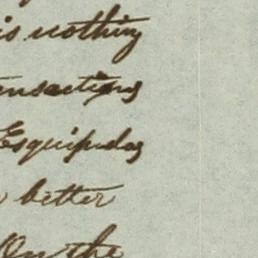 is nothing
ansactions
Esquipulas
better
On the